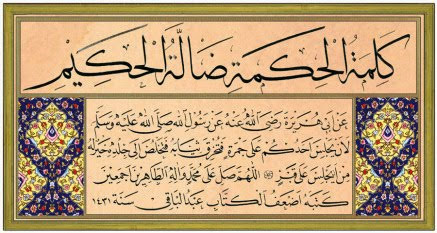 كَلِمَةُ الْحِكْمَةِ ضَالَّةُ الْحَكِيمِ
عَنْ أَبِي هُرَيْرَةَ رَضِيَ اللهُ عَنْهُ عَنْ رَسُولِ اللهِ صَلَّى اللهُ عَلَيْهِ وَسَلَّمَ
لَأَنْ يَجْلِسَ أَحَدُكُمْ عَلَى جَمْرَةٍ فَتُحْرِقَ ثِيَابَهُ فَتَخْلُصَ إِلَى جِلْدِهِ خَيْرٌ لَهُ
مِنْ أَنْ يَجْلِسَ عَلَى قَبْرٍ اللَّهُمَّ صَلِّ عَلَى مُحَمَّدٍ وَآلِهِ الطَّاهِرِينَ أَجْمَعِينَ
كَتَبَهُ أَضْعَفُ الْكُتَّابِ عَبْدُ الْبَاقِي سَنَة ١٤٣١